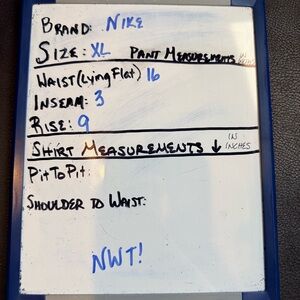 BRAND: NIKE
SIZE: XL PANT MEASUREMENTS
WAIST (Lying Flat) 16
INSEAM: 3
RISE: 9
SHIRT MEASUREMENTS ↓ IN INCHES
PIT TO PIT:
SHOULDER TO WAIST:
NWT!